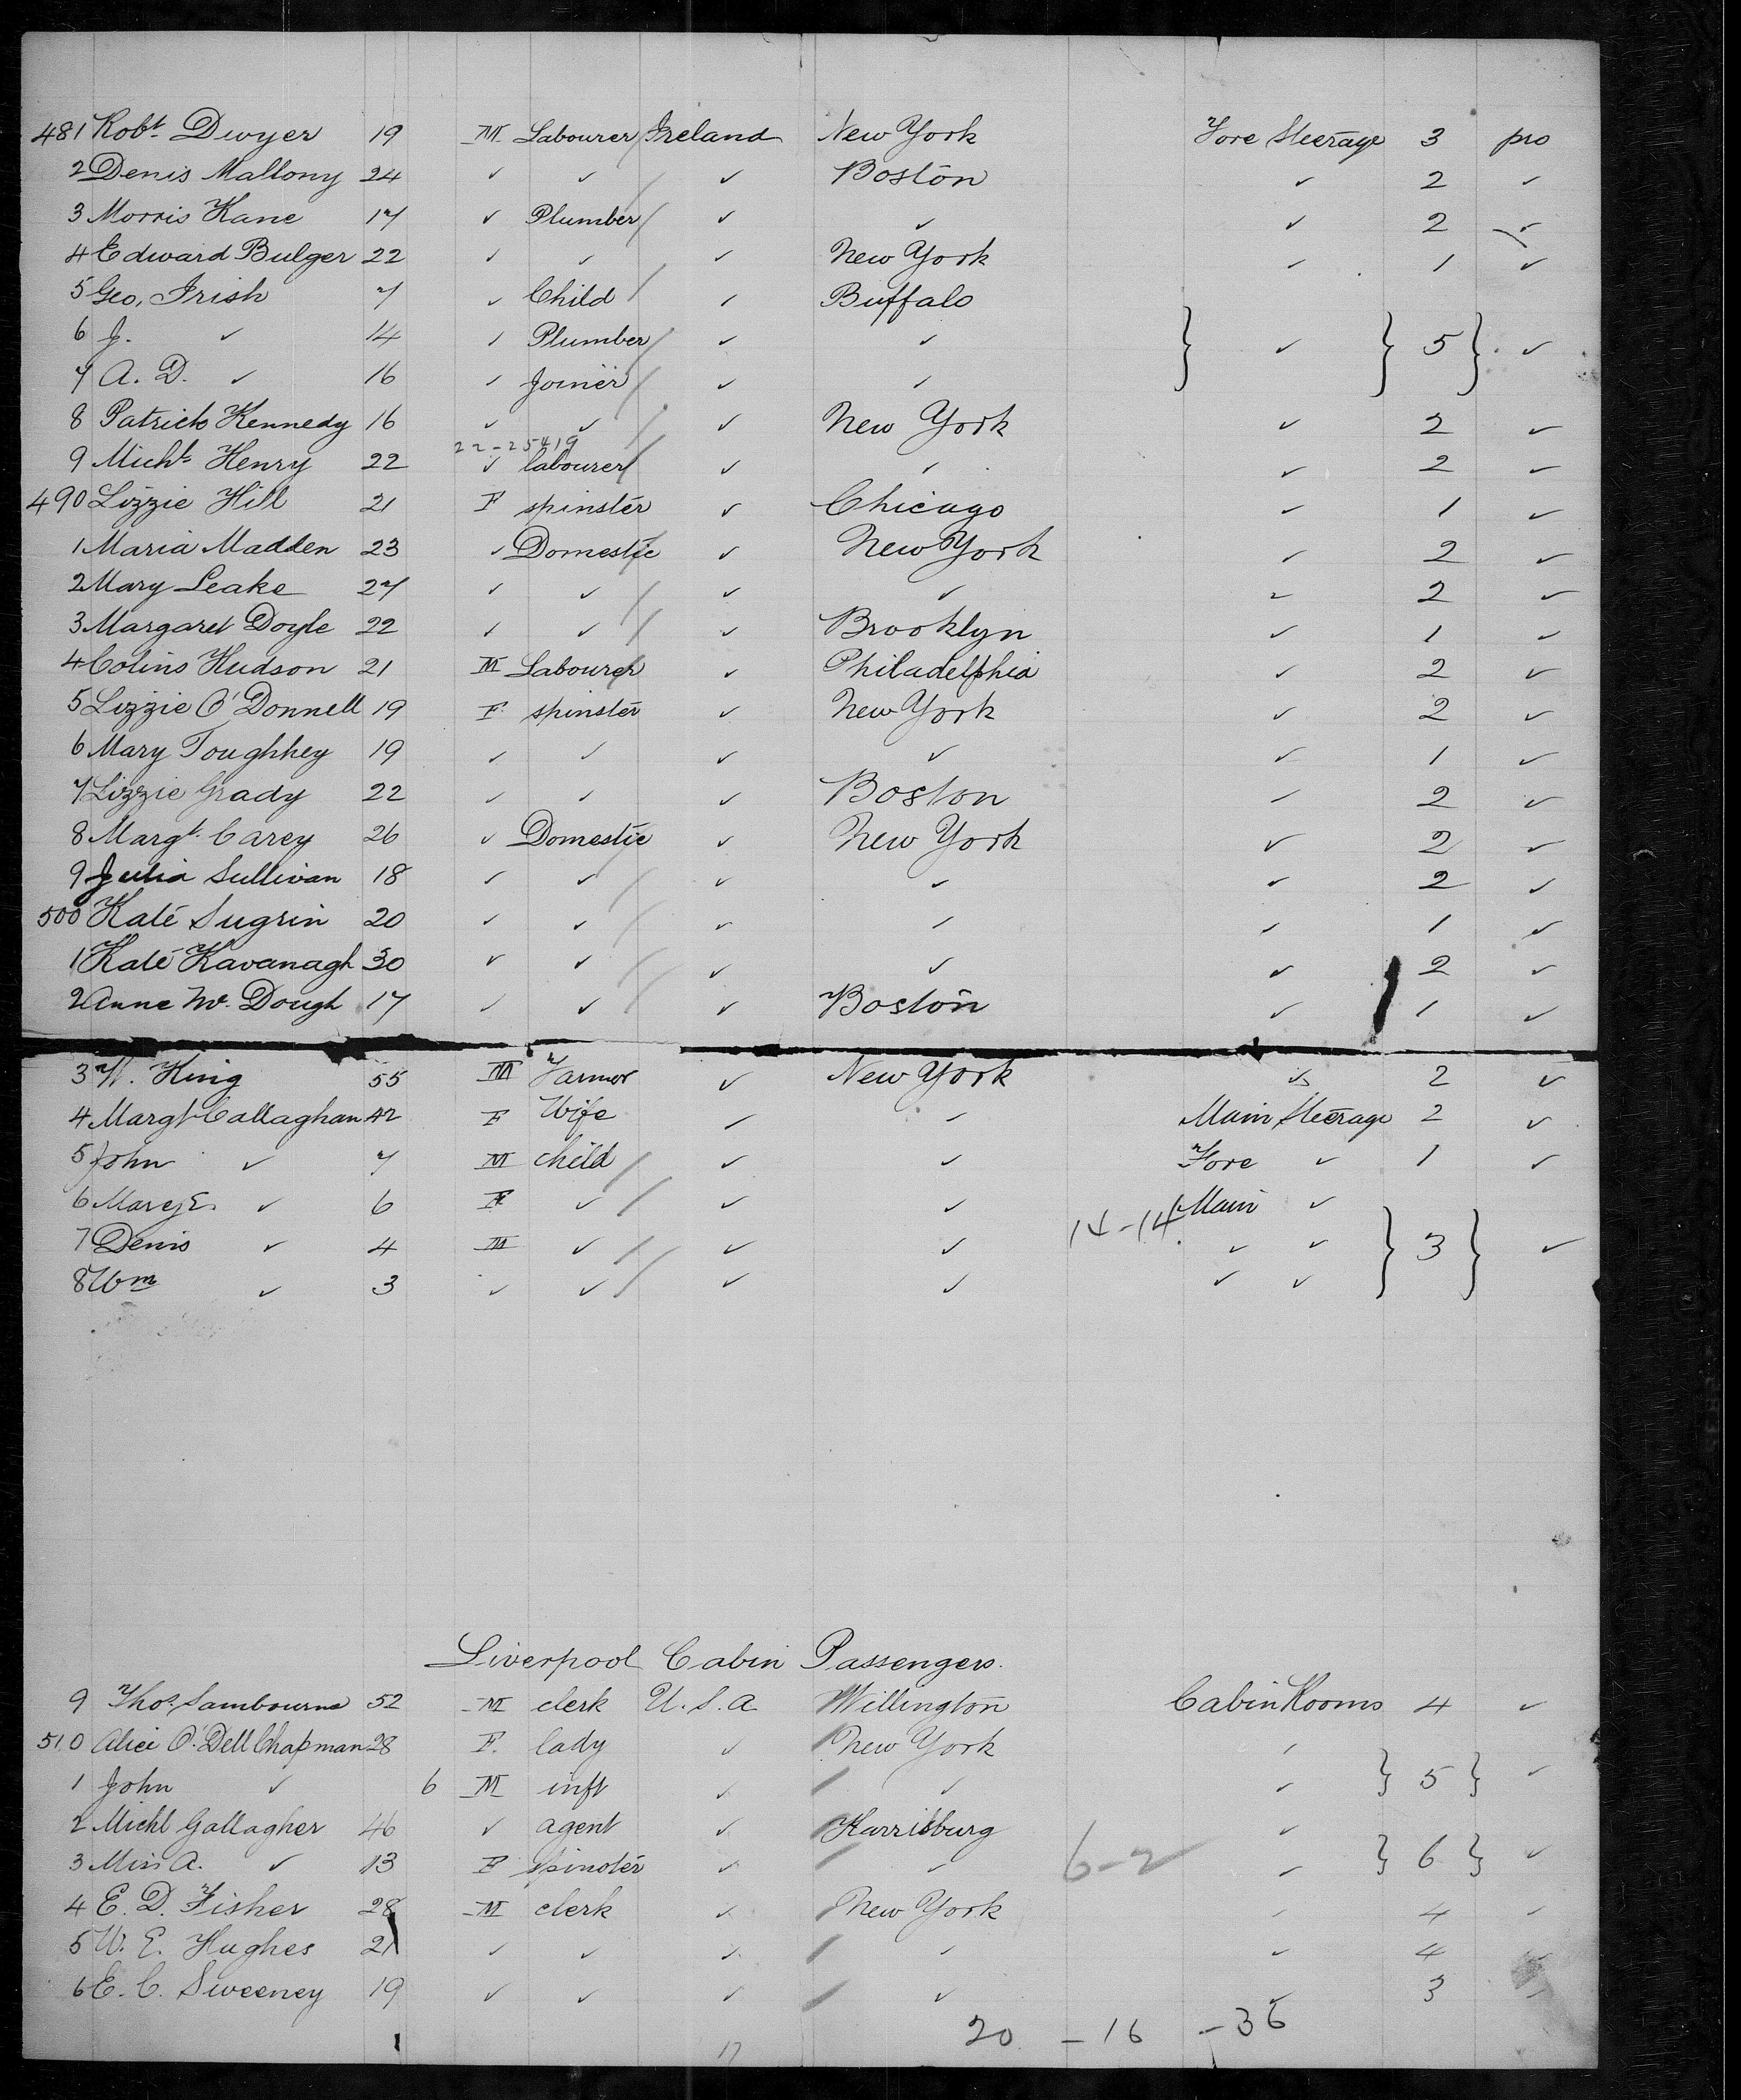 481 Robt. Dwyer 19 M Labourer Ireland New York Fore Steerage 3 pro
2 Denis Mallony 24 ✓ ✓ ✓ Boston ✓ 2 ✓
3 Morris Kane 17 ✓ Plumber ✓ ✓ ✓ 2 ✓
4 Edward Bulger 22 ✓ ✓ ✓ New York ✓ 1 ✓
5 Geo. Irish 7 ✓ Child ✓ Buffalo
6 J. ✓ 14 ✓ Plumber ✓ ✓ } ✓ } 5 } ✓
7 A. D. ✓ 16 ✓ Joiner ✓ ✓
8 Patrick Kennedy 16 ✓ ✓ ✓ New York ✓ 2 ✓
22-25419
9 Michl. Henry 22 ✓ labourer ✓ ✓ ✓ 2 ✓
490 Lizzie Hill 21 F spinster ✓ Chicago ✓ 1 ✓
1 Maria Madden 23 ✓ Domestic ✓ New York ✓ 2 ✓
2 Mary Leake 27 ✓ ✓ ✓ ✓ ✓ 2 ✓
3 Margaret Doyle 22 ✓ ✓ ✓ Brooklyn ✓ 1 ✓
4 Colins Hudson 21 M Labourer ✓ Philadelphia ✓ 2 ✓
5 Lizzie O'Donnell 19 F spinster ✓ New York ✓ 2 ✓
6 Mary Toughhey 19 ✓ ✓ ✓ ✓ ✓ 1 ✓
7 Lizzie Grady 22 ✓ ✓ ✓ Boston ✓ 2 ✓
8 Margt. Carey 26 ✓ Domestic ✓ New York ✓ 2 ✓
9 Julia Sullivan 18 ✓ ✓ ✓ ✓ ✓ 2 ✓
500 Kate Sugrin 20 ✓ ✓ ✓ ✓ ✓ 1 ✓
1 Kate Kavanagh 30 ✓ ✓ ✓ ✓ ✓ 2 ✓
2 Anne Mc. Dough 17 ✓ ✓ ✓ Boston ✓ 1 ✓
3 W. King 55 M Farmer ✓ New York ✓ 2 ✓
4 Margt Callaghan 42 F Wife ✓ ✓ Main Steerage 2 ✓
5 John ✓ 7 M child ✓ ✓ Fore ✓ 1 ✓
6 Mary E. ✓ 6 F ✓ ✓ ✓ Main ✓
7 Denis ✓ 4 M ✓ ✓ ✓ 14-14 ✓ ✓ } 3 } ✓
8 Wm ✓ 3 ✓ ✓ ✓ ✓ ✓ ✓
Liverpool Cabin Passengers.
9 Thos. Sambourne 52 M clerk U.S.A Willington Cabin Rooms 4 ✓
510 Alice O'Dell Chapman 28 F. lady ✓ New York ✓
1 John ✓ 6 M inft ✓ ✓ ✓ } 5 } ✓
2 Michl Gallagher 46 ✓ agent ✓ Harrisburg ✓
3 Miss A. ✓ 13 F spinster ✓ ✓ 6-2 ✓ } 6 } ✓
4 E. D. Fisher 28 M clerk ✓ New York ✓ 4 ✓
5 W. E. Hughes 21 ✓ ✓ ✓ ✓ ✓ 4
6 E. C. Sweeney 19 ✓ ✓ ✓ ✓ ✓ 3 ✓
20 - 16 - 36
17